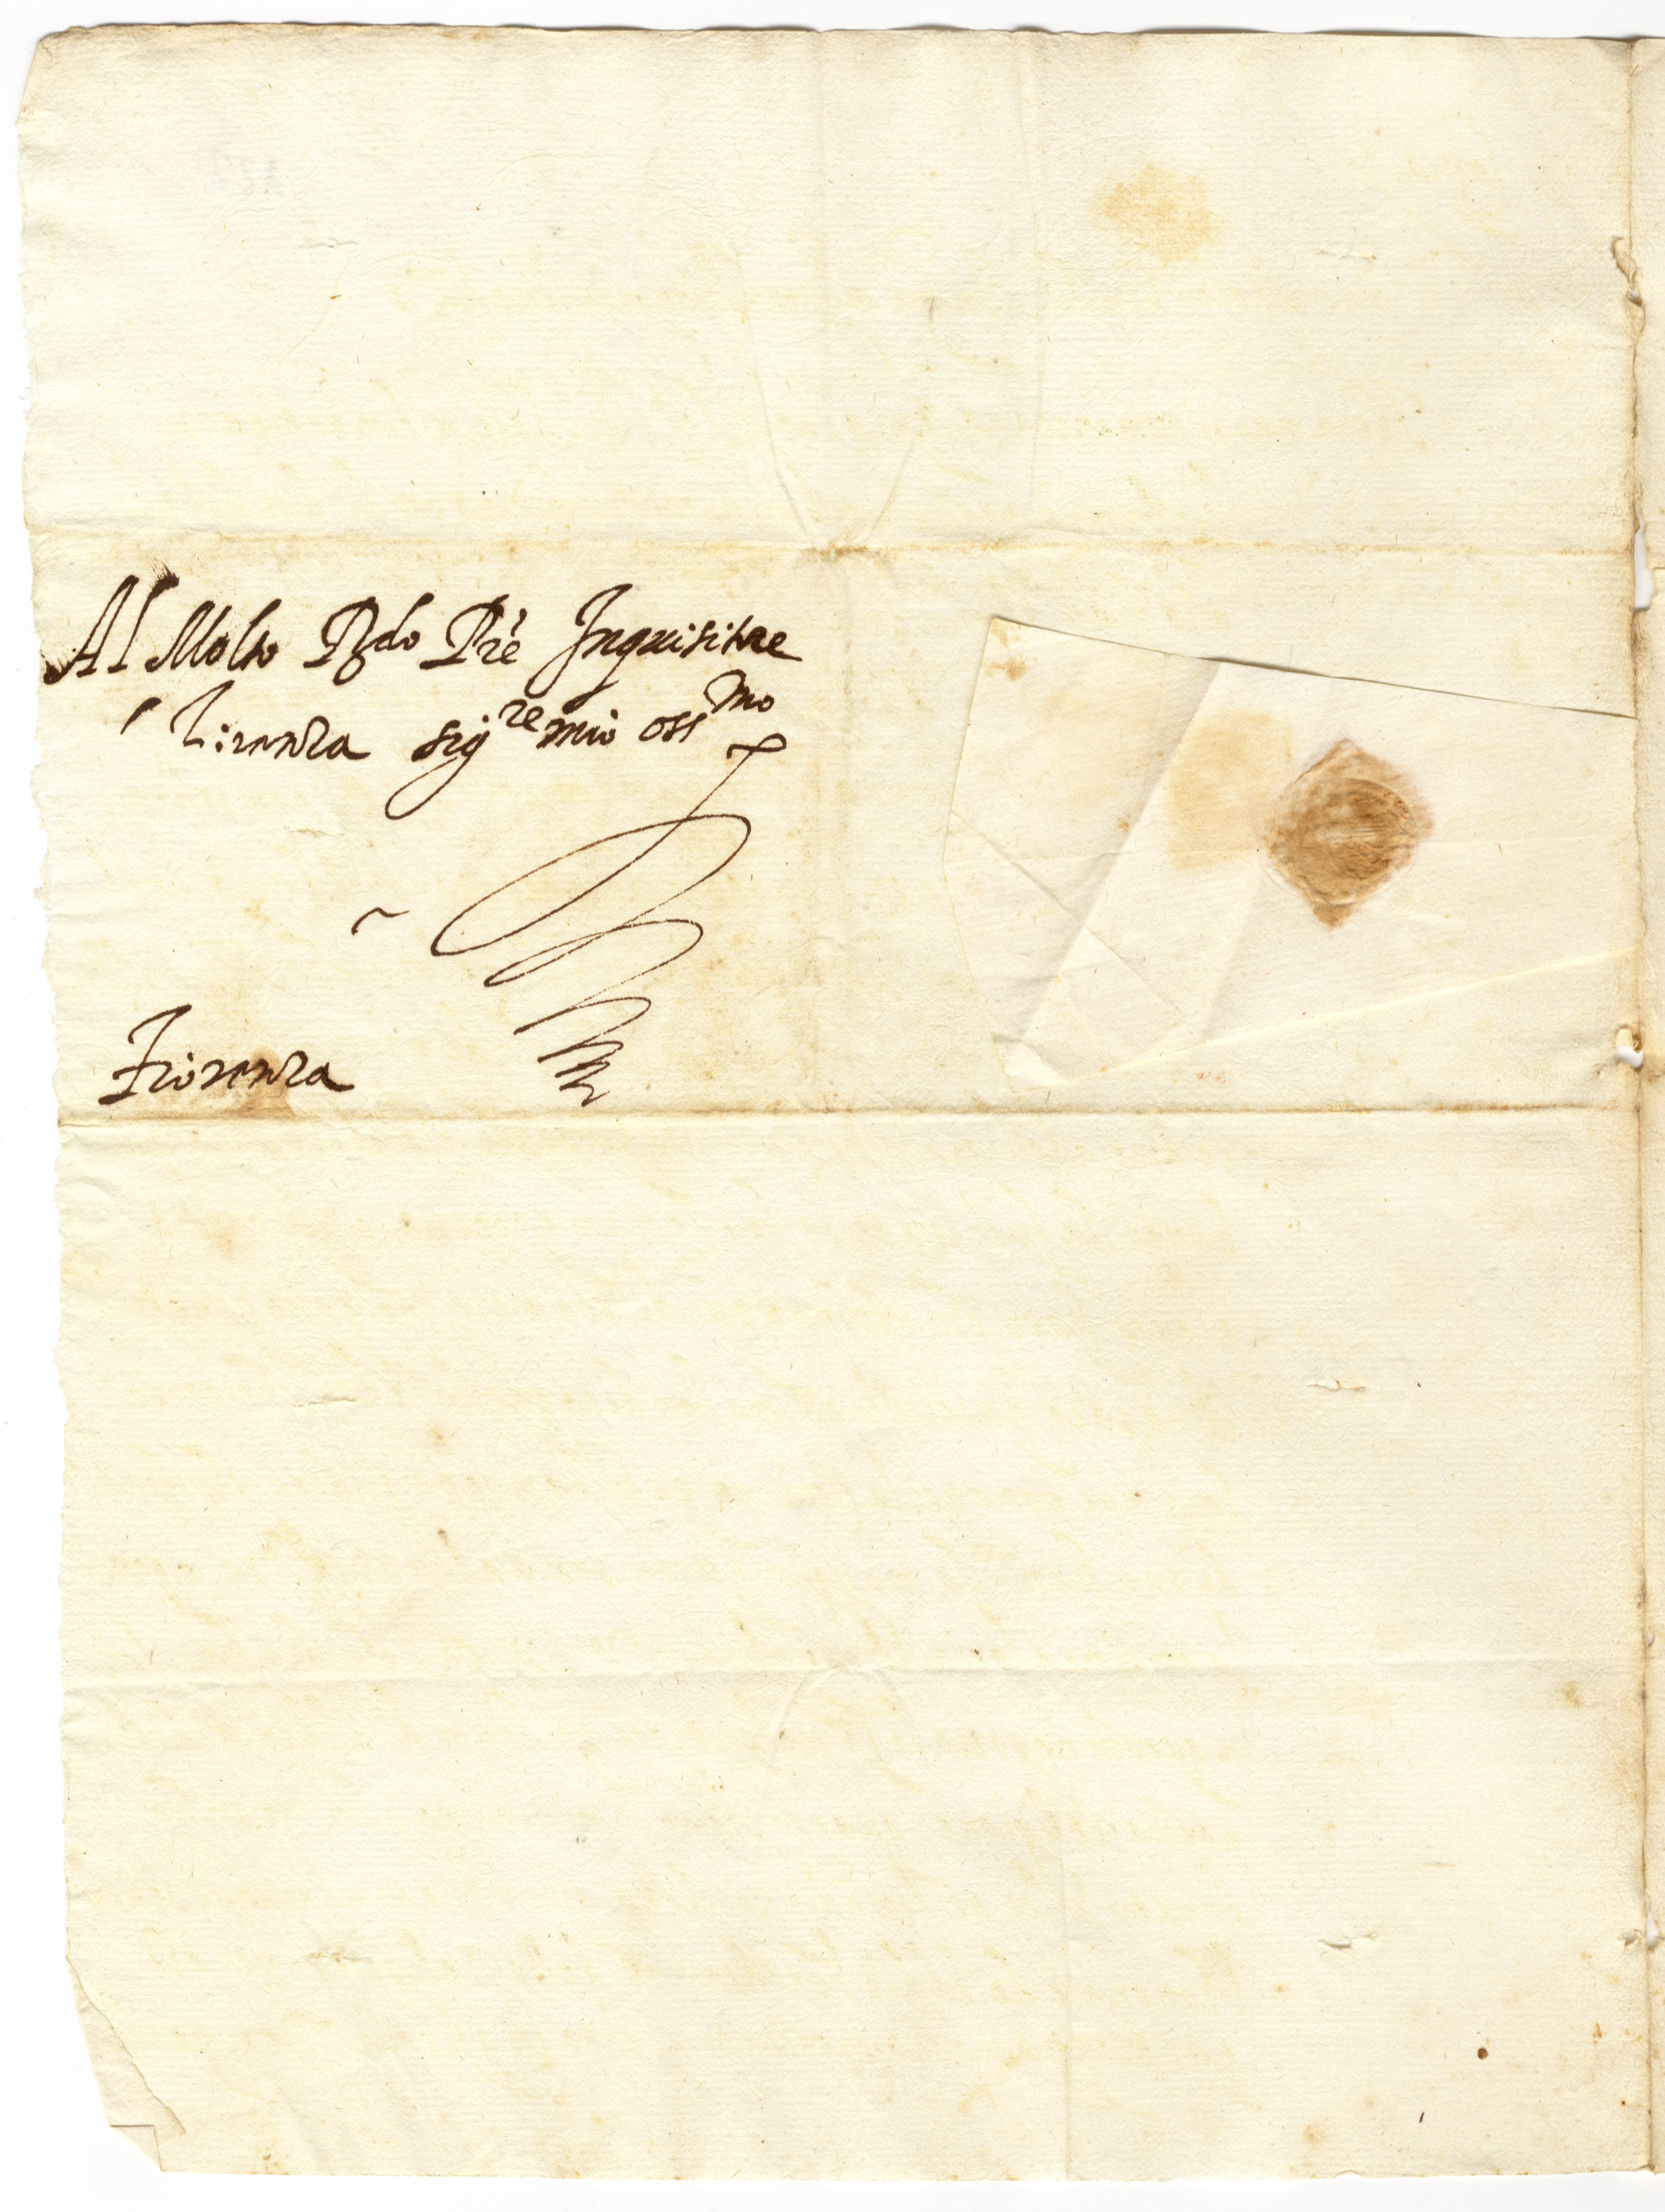 Al Molto Rdo Prè Inquisitore
Firenza sigre mio ossmo
Fiorenza